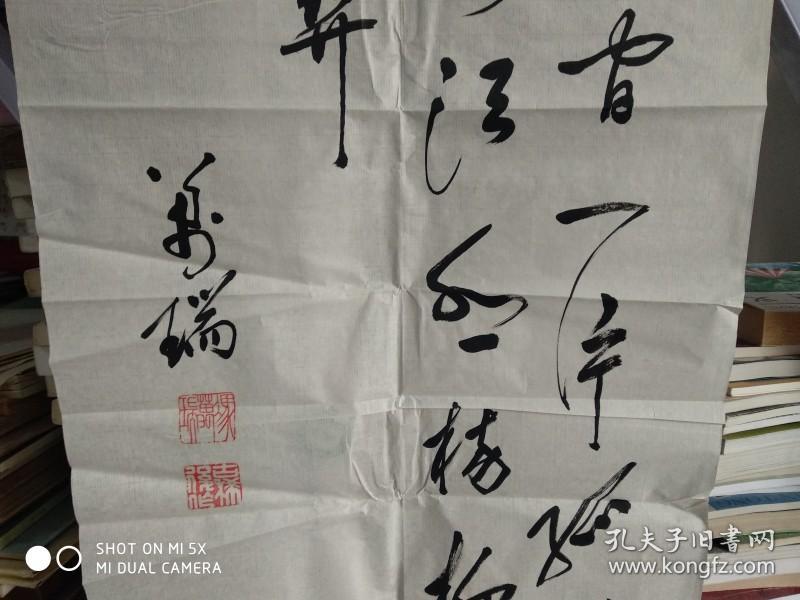 间一片孤
须怨杨柳
萬瑞
SHOT ON MI 5X
MI DUAL CAMERA
孔夫子旧书网
www.kongfz.com